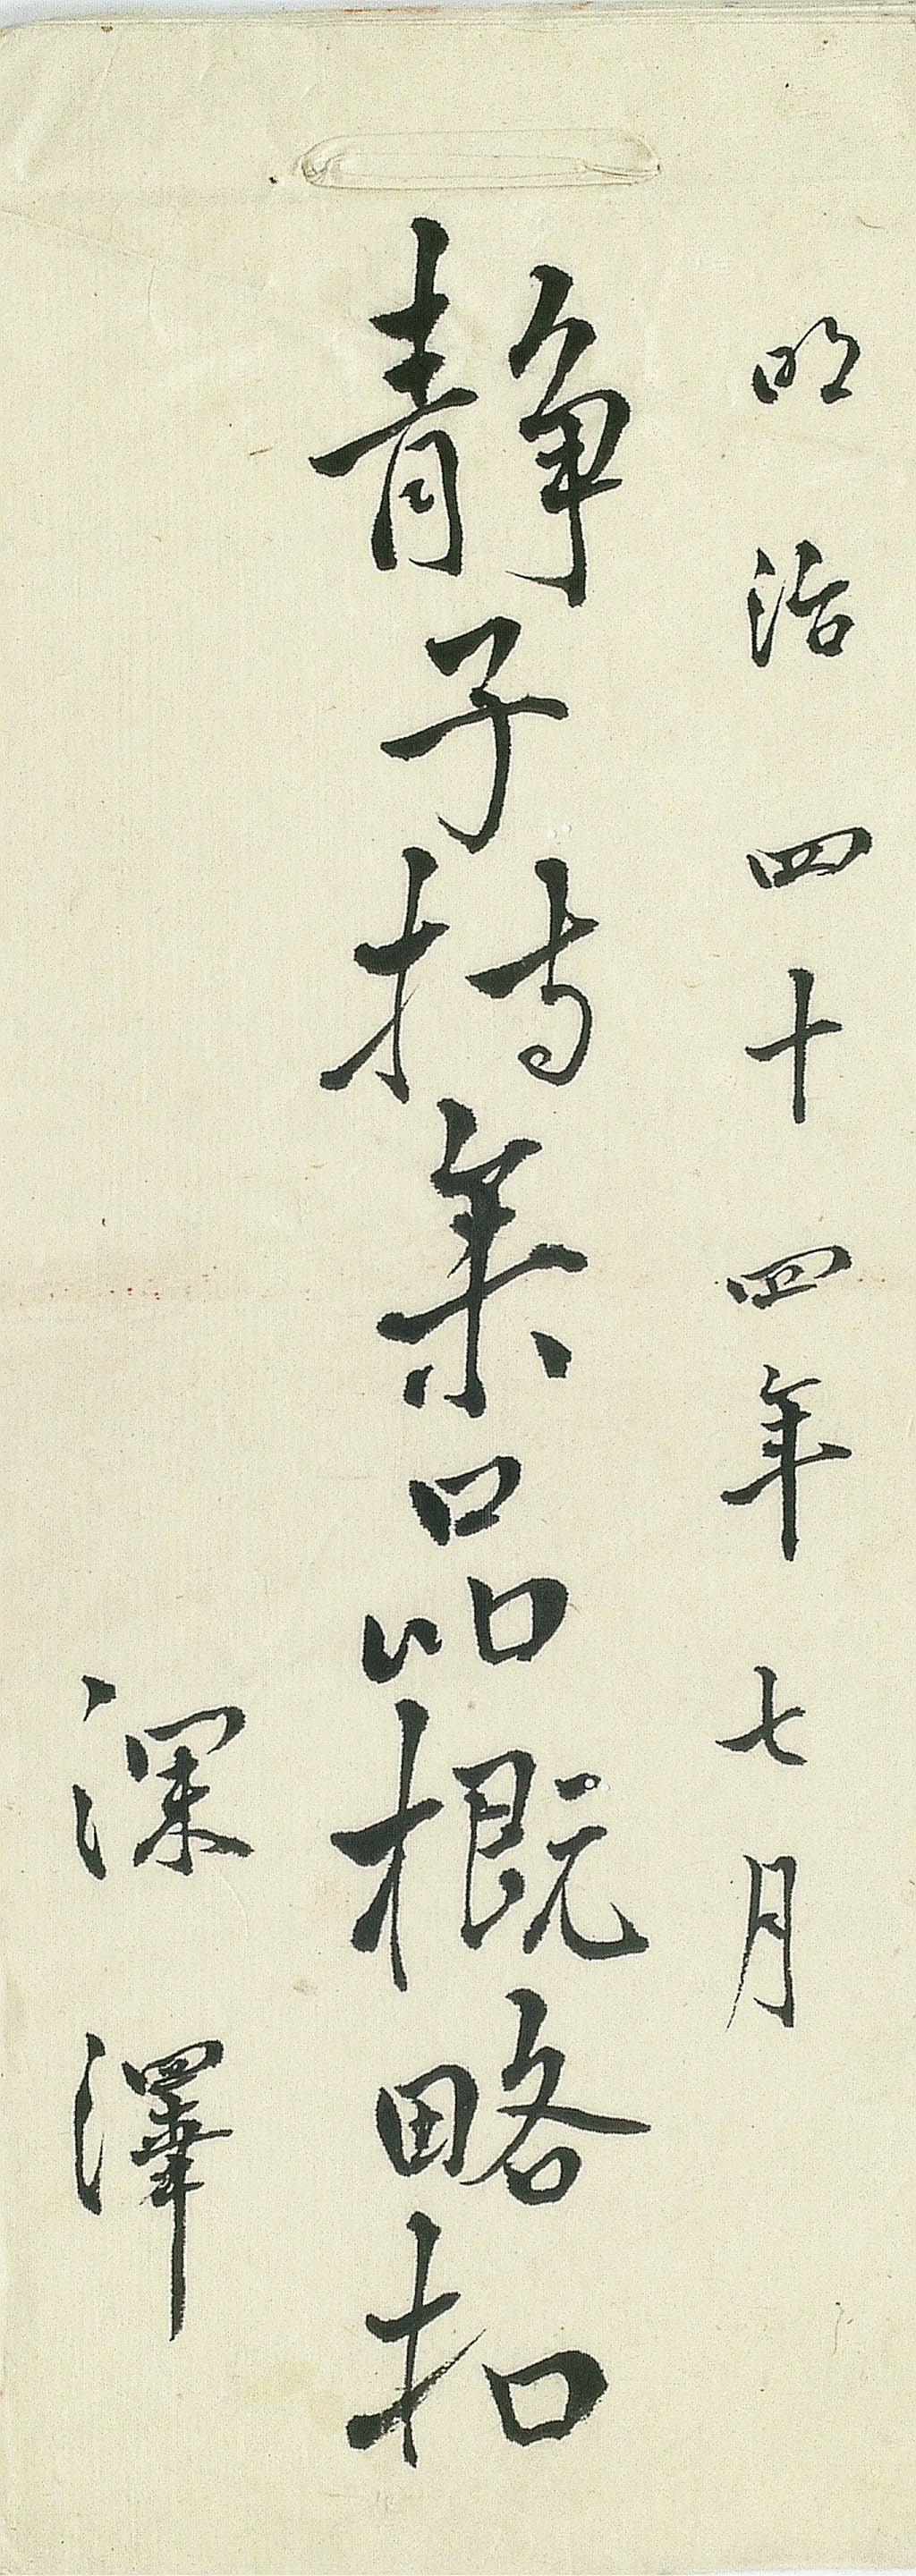 明治四十四年七月
静子持集品概略扣
深澤